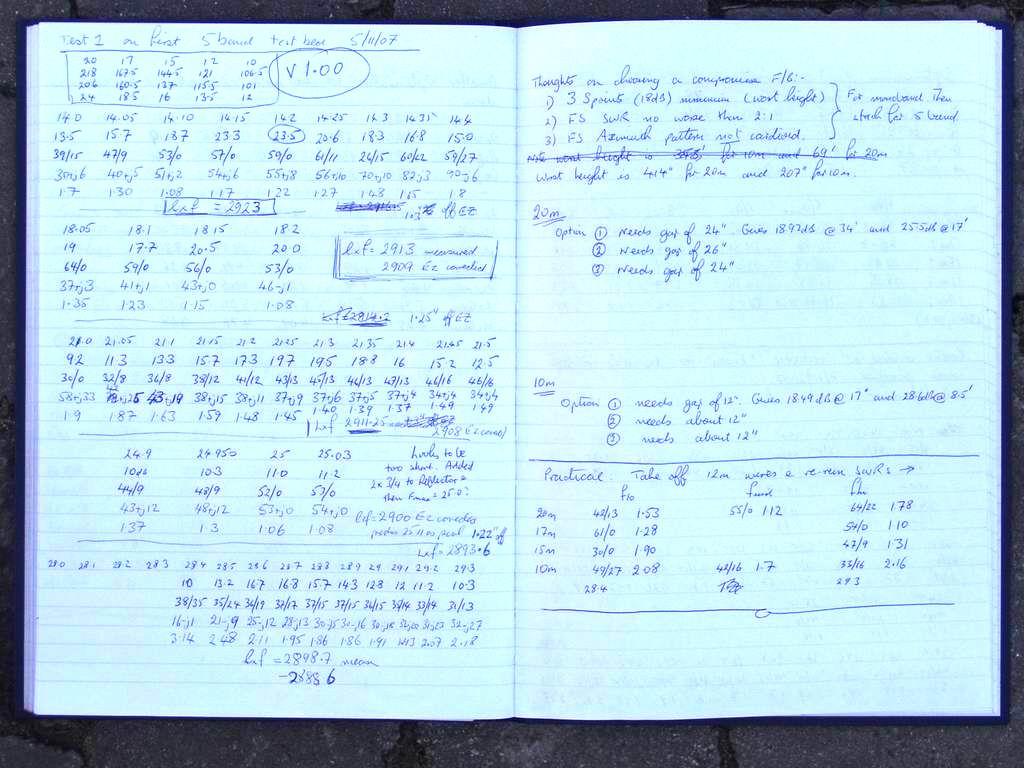 Test 1 on first 5 band test bed 5/11/07
20 17 15 12 10
218 167.5 144.5 121 106.5
206 160.5 137 115.5 101
24 18.5 16 13.5 12
V 1.00
14.0 14.05 14.10 14.15 14.2 14.25 14.3 14.35 14.4
13.5 15.7 18.7 23.3 23.5 20.6 18.3 16.8 15.0
39/15 47/9 53/0 57/0 59/0 61/11 60/22 59/27
30+j6 40+j5 51+j2 54+j6 55+j8 56+j10 70+j10 82+j3 90-j6
1.7 1.30 1.08 1.17 1.22 1.27 1.48 1.65 1.8
Lxf = 2923
off EZ
18.05 18.1 18.15 18.2
19 17.7 20.5 20.0
Lxf = 2913 measured
2909 Ez corrected
64/0 59/0 56/0 53/0
37+j3 41+j1 43+j0 46-j1
1.35 1.23 1.15 1.08
1.25" off EZ
21.0 21.05 21.1 21.15 21.2 21.25 21.3 21.35 21.4 21.45 21.5
9.2 11.3 13.3 15.7 17.3 19.7 19.5 18.8 16 15.2 12.5
30/0 32/8 36/8 38/12 41/12 43/13 45/13 46/13 47/13 46/16 46/16
58+j33 43+j19 38+j15 38+j11 37+j9 37+j6 37+j5 37+j4 34+j4 34+j4
1.9 1.87 1.63 1.59 1.48 1.45 1.40 1.39 1.37 1.49 1.49
Lxf 2911.25
2908 Ez corrected
24.9 24.950 25 25.03
Looks to be
too short. Added
10.3 11.0 11.2
2 x 3/4 to Reflector =
then Fmax = 25.0
44/9 48/9 52/0 53/0
43+j12 48+j12 53+j0 54+j0
Lxf = 2900 Ez corrected
1.37 1.3 1.06 1.08
1.22" off
Lxf = 2893.6
28.0 28.1 28.2 28.3 28.4 28.5 28.6 28.7 28.8 28.9 29 29.1 29.2 29.3
10 13.2 16.7 16.8 15.7 14.3 12.8 12 11.2 10.3
38/35 35/24 34/19 37/17 37/15 37/15 36/15 39/14 33/14 31/13
16-j1 21-j9 25-j12 28-j13 30-j15 30-j16 32-j27
3.14 2.48 2.11 1.95 1.86 1.86 1.91 2.07 2.18
Lxf = 2898.7 mean
-2888 6
Thoughts on choosing a compromise F/B:-
1) 3 Spoints (18dB) minimum (worst height)
2) FS SWR no worse than 2:1
3) FS Azimuth pattern not cardioid.
For monoband then
stack for 5 band
Note worst height is for 10m and 69' for 20m
Worst height is 414" for 20m and 207" for 10m.
20m
Option 1 Needs gap of 24". Gives 18.92dB @ 34' and 25.5dB @ 17'
2 Needs gap of 26"
3 Needs gap of 24"
10m
Option 1 needs gap of 12". Gives 18.49dB @ 17' and 28.6dB @ 8.5'
2 needs about 12"
3 needs about 12"
Practical. Take off 12m wires & re-run SWRs →
Flo Fmid Fhi
20m 42/13 1.53 55/0 1.12 64/22 1.78
17m 61/0 1.28 54/0 1.10
15m 30/0 1.90 47/9 1.31
10m 49/27 2.08 42/16 1.7 33/16 2.16
28.4 29.3